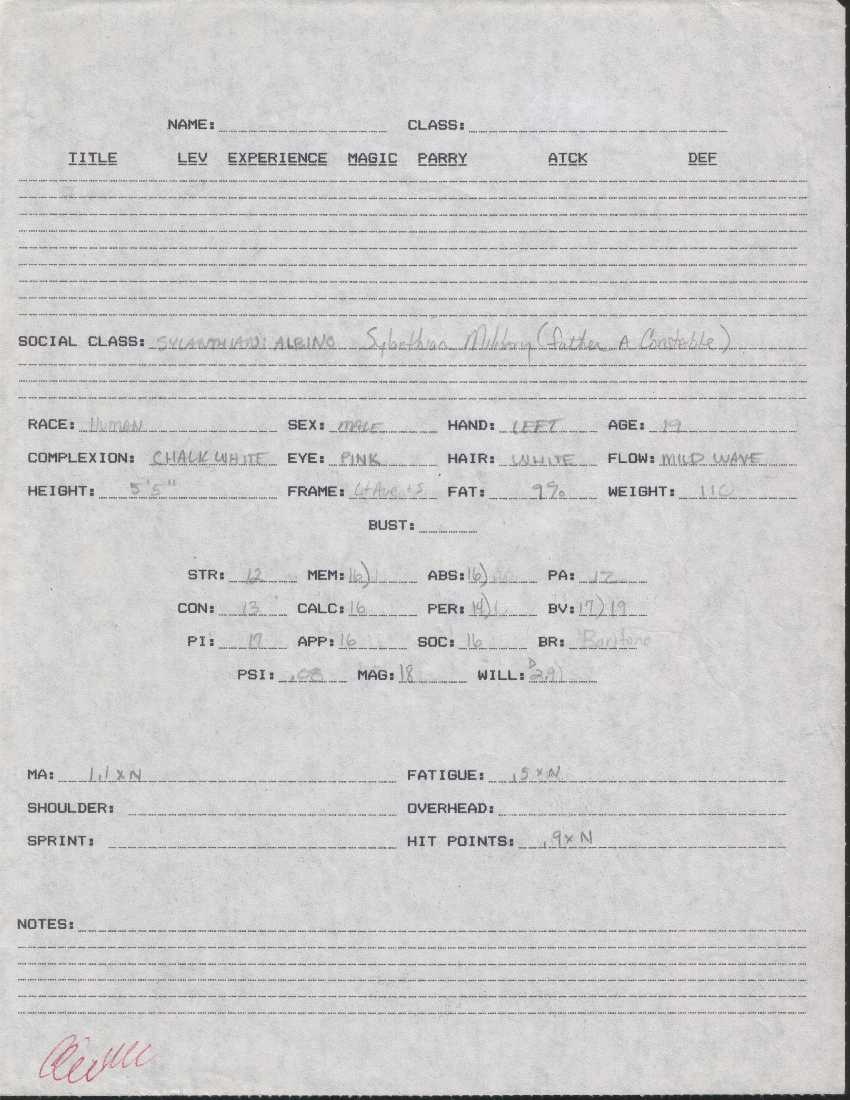 NAME: CLASS:
TITLE LEV EXPERIENCE MAGIC PARRY ATCK DEF
SOCIAL CLASS: ALBINO Military (father A Constable)
RACE: HUMAN SEX: MALE HAND: LEFT AGE: 19
COMPLEXION: CHALK WHITE EYE: PINK HAIR: WHITE FLOW: MILD WAVE
HEIGHT: 5'5" FRAME: FAT: 9% WEIGHT: 110
BUST:
STR: 12 MEM: 16) ABS: 16) PA: 12
CON: 13 CALC: 16 PER: 14) BV: 17) 19
PI: 17 APP: 16 SOC: 16 BR: Baritone
PSI: .08 MAG: 18 WILL:
MA: 1.1 x N FATIGUE: .5 x N
SHOULDER: OVERHEAD:
SPRINT: HIT POINTS: .9 x N
NOTES: